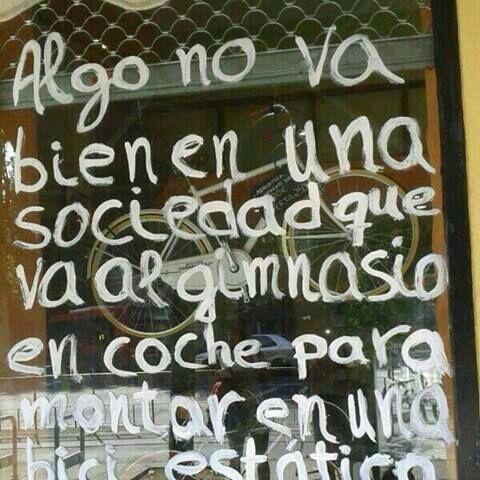 Algo no va
bien en una
sociedad que
va al gimnasio
en coche para
montar en una
bici estática